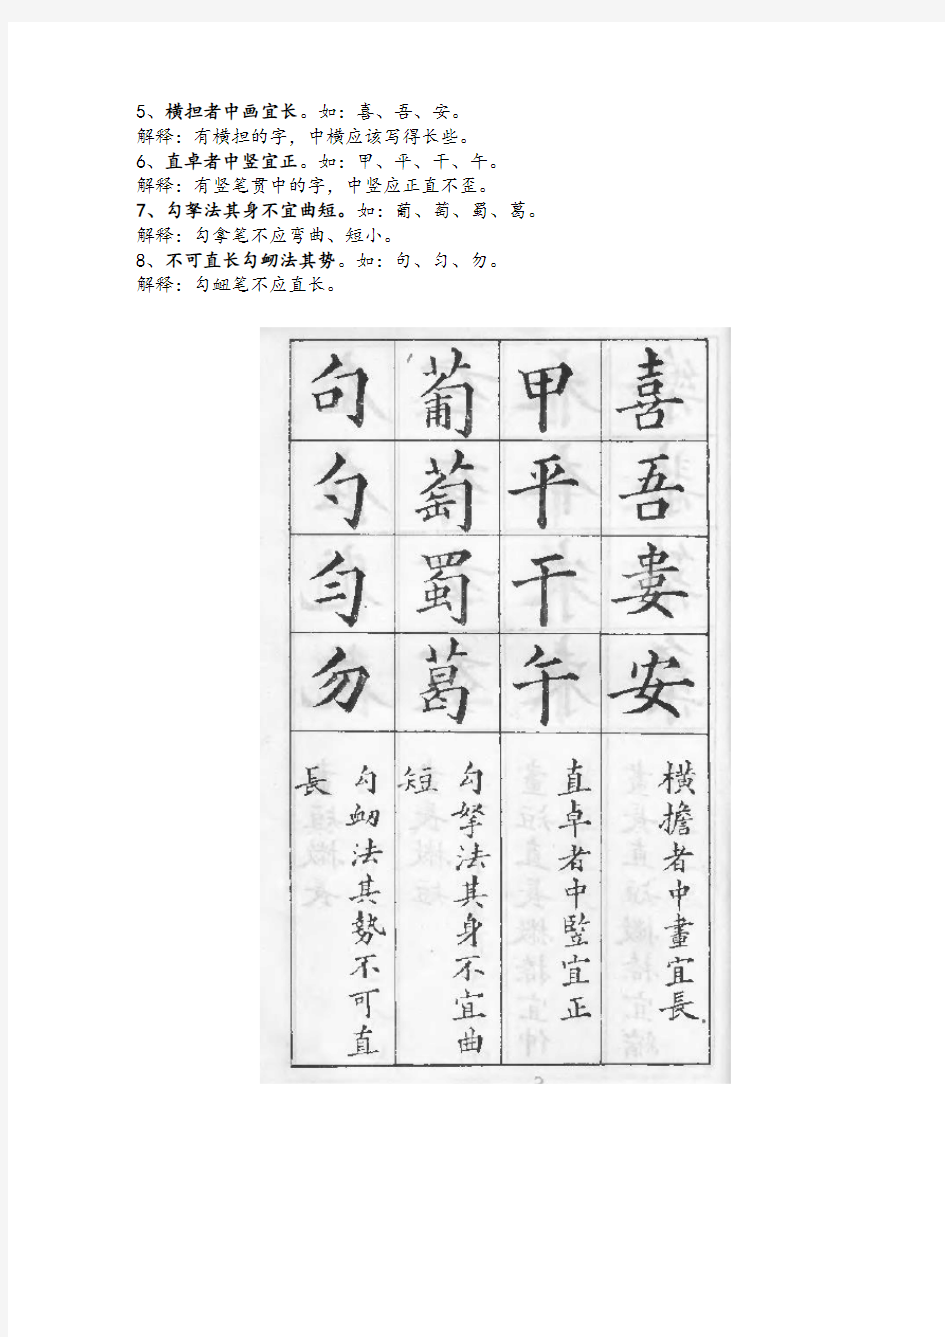 5、横担者中画宜长。如：喜、吾、安。
解释：有横担的字，中横应该写得长些。
6、直卓者中竖宜正。如：甲、平、干、午。
解释：有竖笔贯中的字，中竖应正直不歪。
7、勾拏法其身不宜曲短。如：葡、萄、蜀、葛。
解释：勾拿笔不应弯曲、短小。
8、不可直长勾衂法其势。如：句、匀、勿。
解释：勾衄笔不应直长。
喜吾婁安
橫擔者中畫宜長
甲平干午
直卓者中竪宜正
葡萄蜀葛
勾拏法其身不宜曲
短
句勺匀勿
勾衂法其勢不可直
長